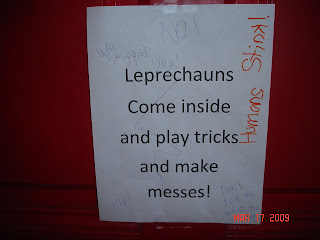 No!
you!
Humans Stink!
Leprechauns
Come inside
and play tricks
and make
messes!
Don't
MAR 17 2009